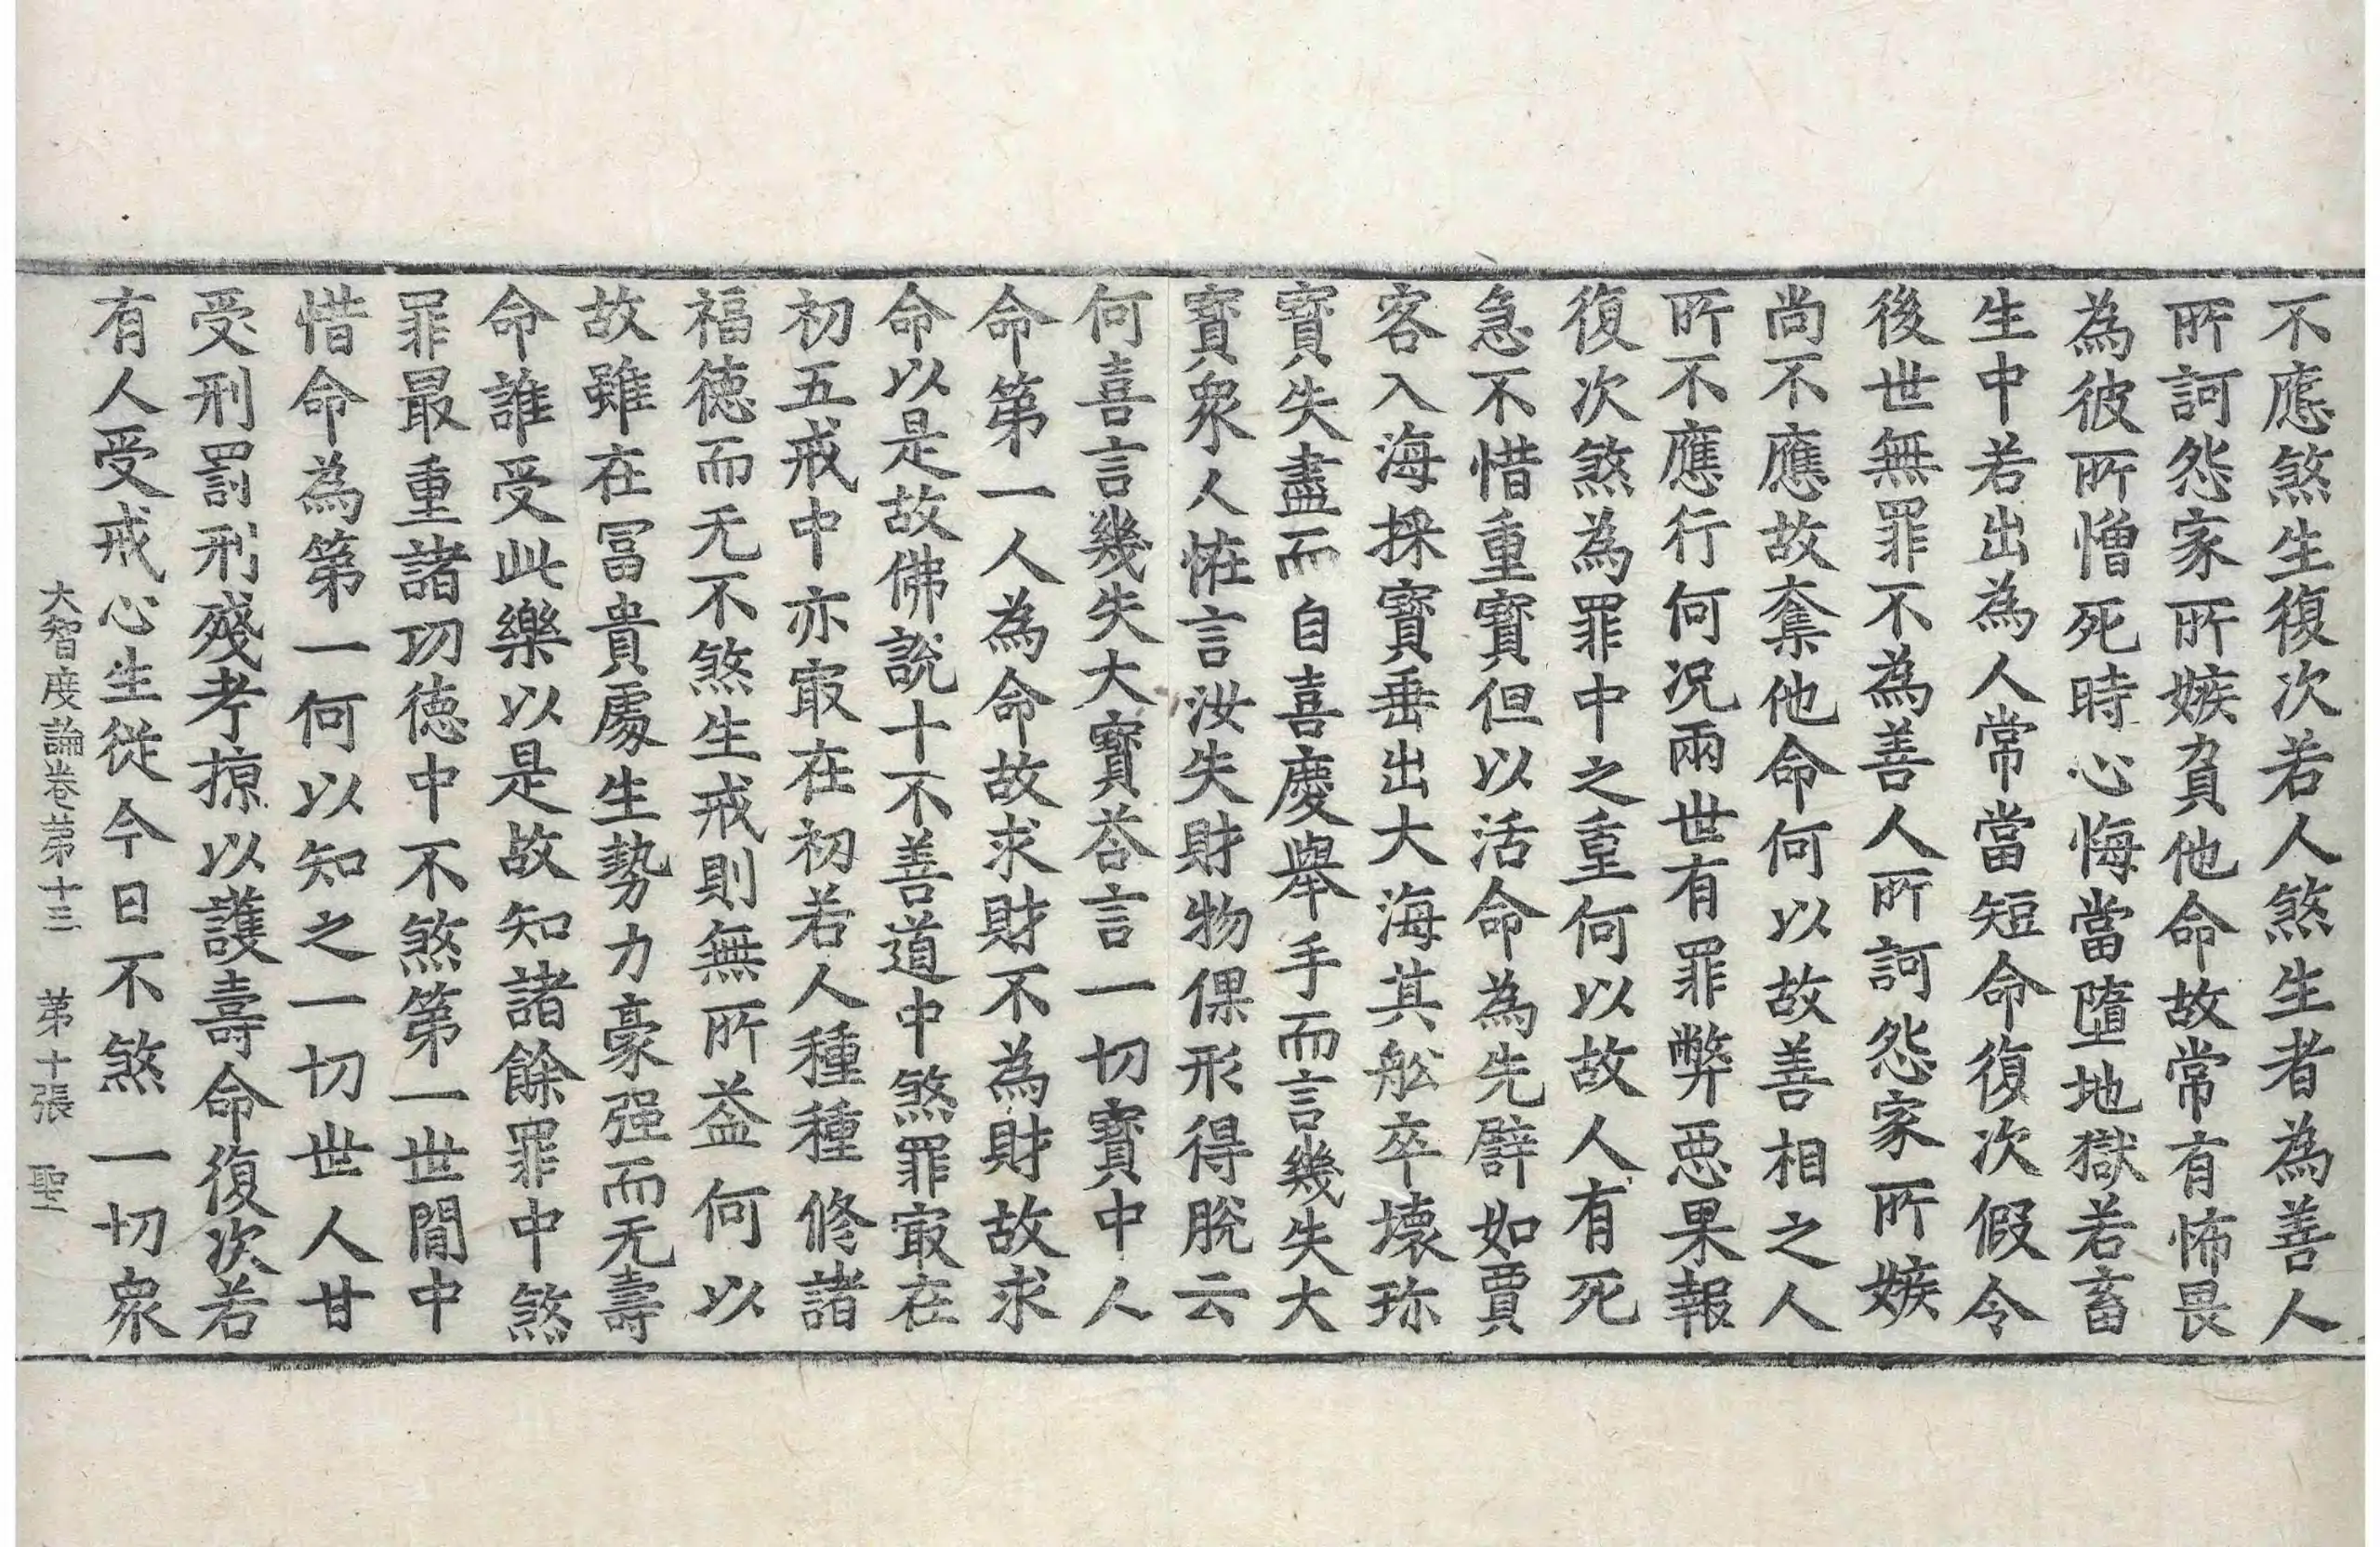 不應煞生復次若人煞生者為善人
所訶怨家所嫉負他命故常有怖畏
為彼所憎死時心悔當墮地獄若畜
生中若出為人常當短命復次假令
後世無罪不為善人所訶怨家所嫉
尚不應故奪他命何以故善相之人
所不應行何況兩世有罪弊惡果報
復次煞為罪中之重何以故人有死
急不惜重寶但以活命為先譬如賈
客入海採寶垂出大海其舩卒壞珎
寶失盡而自喜慶舉手而言幾失大
寶衆人怪言汝失財物倮形得脫云
何喜言幾失大寶荅言一切寶中人
命第一人為命故求財不為財故求
命以是故佛說十不善道中煞罪冣在
初五戒中亦冣在初若人種種修諸
福徳而无不煞生戒則無所益何以
故雖在冨貴處生勢力豪强而无壽
命誰受此樂以是故知諸餘罪中煞
罪最重諸功徳中不煞第一世間中
惜命為第一何以知之一切世人甘
受刑罰刑殘考掠以護壽命復次若
有人受戒心生從今日不煞一切衆
大智度論卷第十三 第十張 聖